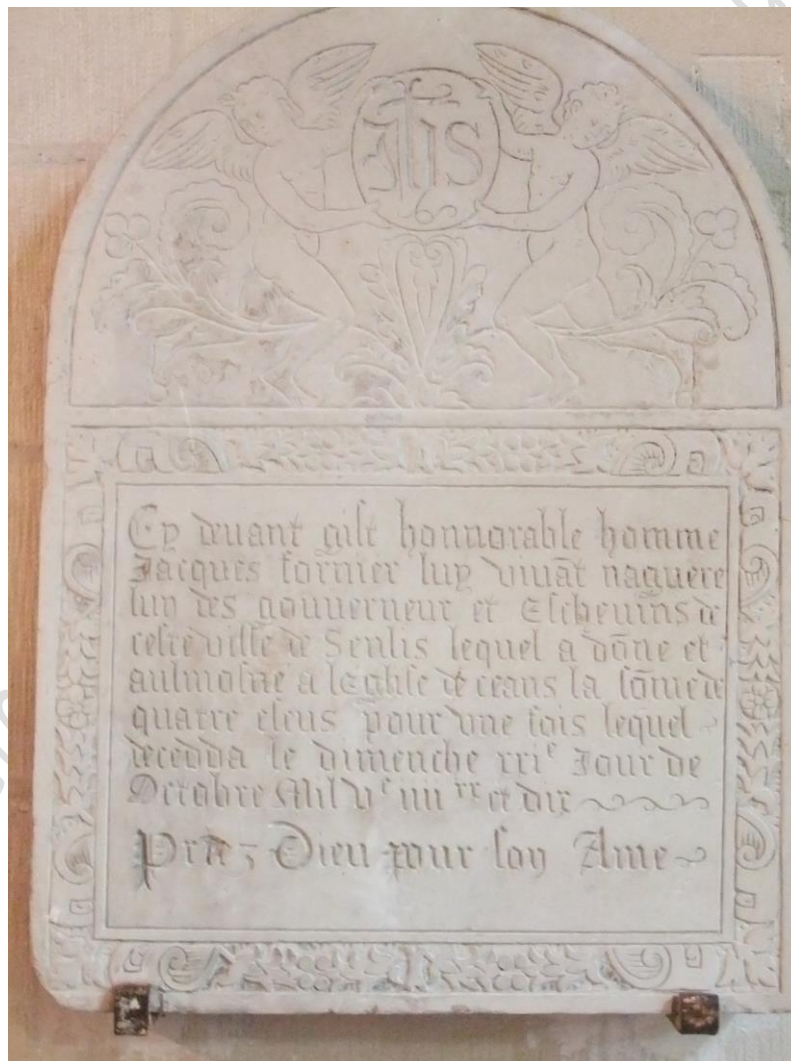 IHS
Cy devant gist honnorable homme
Jacques fornier luy vivāt naguere
lun des gouverneur et Eschevins de
ceste ville de Senlis lequel a dōne et
aulmosne a leglise de ceans la sōme de
quatre escus pour une fois lequel
decedda le dimenche xxie Jour de
Octobre Mil vc iiii xx et dix
Priez Dieu pour son Ame